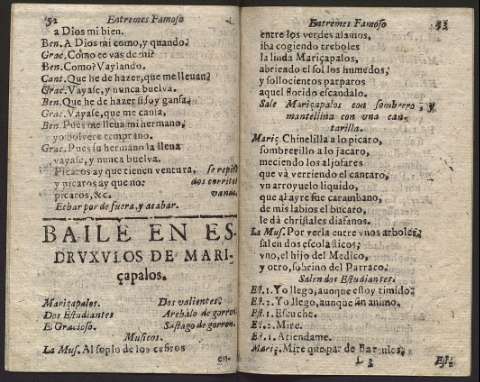 52 Entremes Famoso
a Dios mi bien.
Ben. A Dios mi como, y quando?
Grac. Como te vas de mi?
Ben. Como? Vaylando.
Cant. Que he de hazer, que me lleuan?
Grac. Vayase, y nunca buelva.
Ben. Que he de hazer si soy gansa.
Grac. Vayase, que me cansa,
Ben. Pues me lleua mi hermano,
yo bolverè temprano.
Grac. Pues su hermano la lleua
vayase, y nunca buelva.
Picaros ay que tienen ventura, se repite
y picaros ay que no:
picaros, &c.
Echar por de fuera, y acabar.
BAILE EN ES-
DRVXVLOS DE MARI-
çapalos.
Mariçapalos. Dos valientes.
Dos Estudiantes Arebalo de gorron.
El Gracioso. Sastago de gorron.
Musicos.
La Mus. Al soplo de los cefiros
en-
Entremes Famoso 53
entre los verdes alamos,
iba cogiendo treboles
la linda Mariçapalos,
abriendo el sol los humedos,
y sollocientos parparos
aquel florido escandalo.
Sale Mariçapalos con sombrero, y
mantellina con una can-
tarilla.
Mariç. Chinelilla a lo picaro,
sombrerillo a lo jacaro,
meciendo los aljofares
que và verriendo el cantaro,
vn arroyuelo liquido,
que al ayre fue carambano,
de mis labios el bucaro,
le dà christales diafanos.
La Mus. Por verla entre vnos arboles,
salen dos escolasticos;
vno, el hijo del Medico,
y otro, sobrino del Parraco.
Salen dos Estudiantes.
Est. 1. Yo llego, aunque estoy timido.
Est. 2. Yo llego, aunque sin animo.
Est. 1. Escuche.
Est. 2. Mire.
Est. 1. Atiendame.
Mariç. Mire que par de Barbulos,
Est.